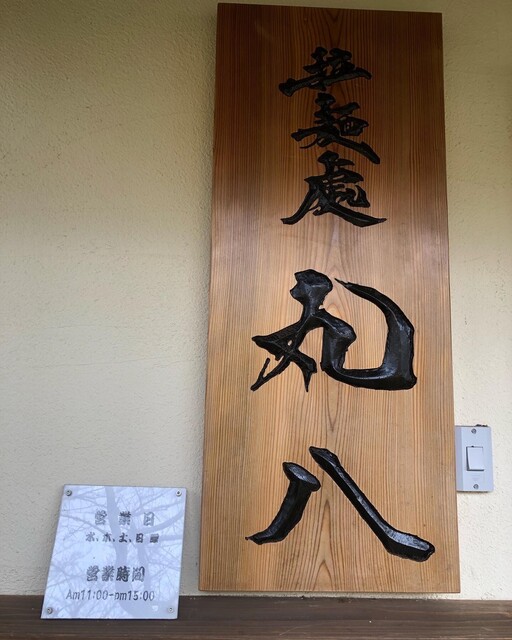 拉麺處
丸八
営業日
水、木、土、日曜
営業時間
Am11:00-pm15:00